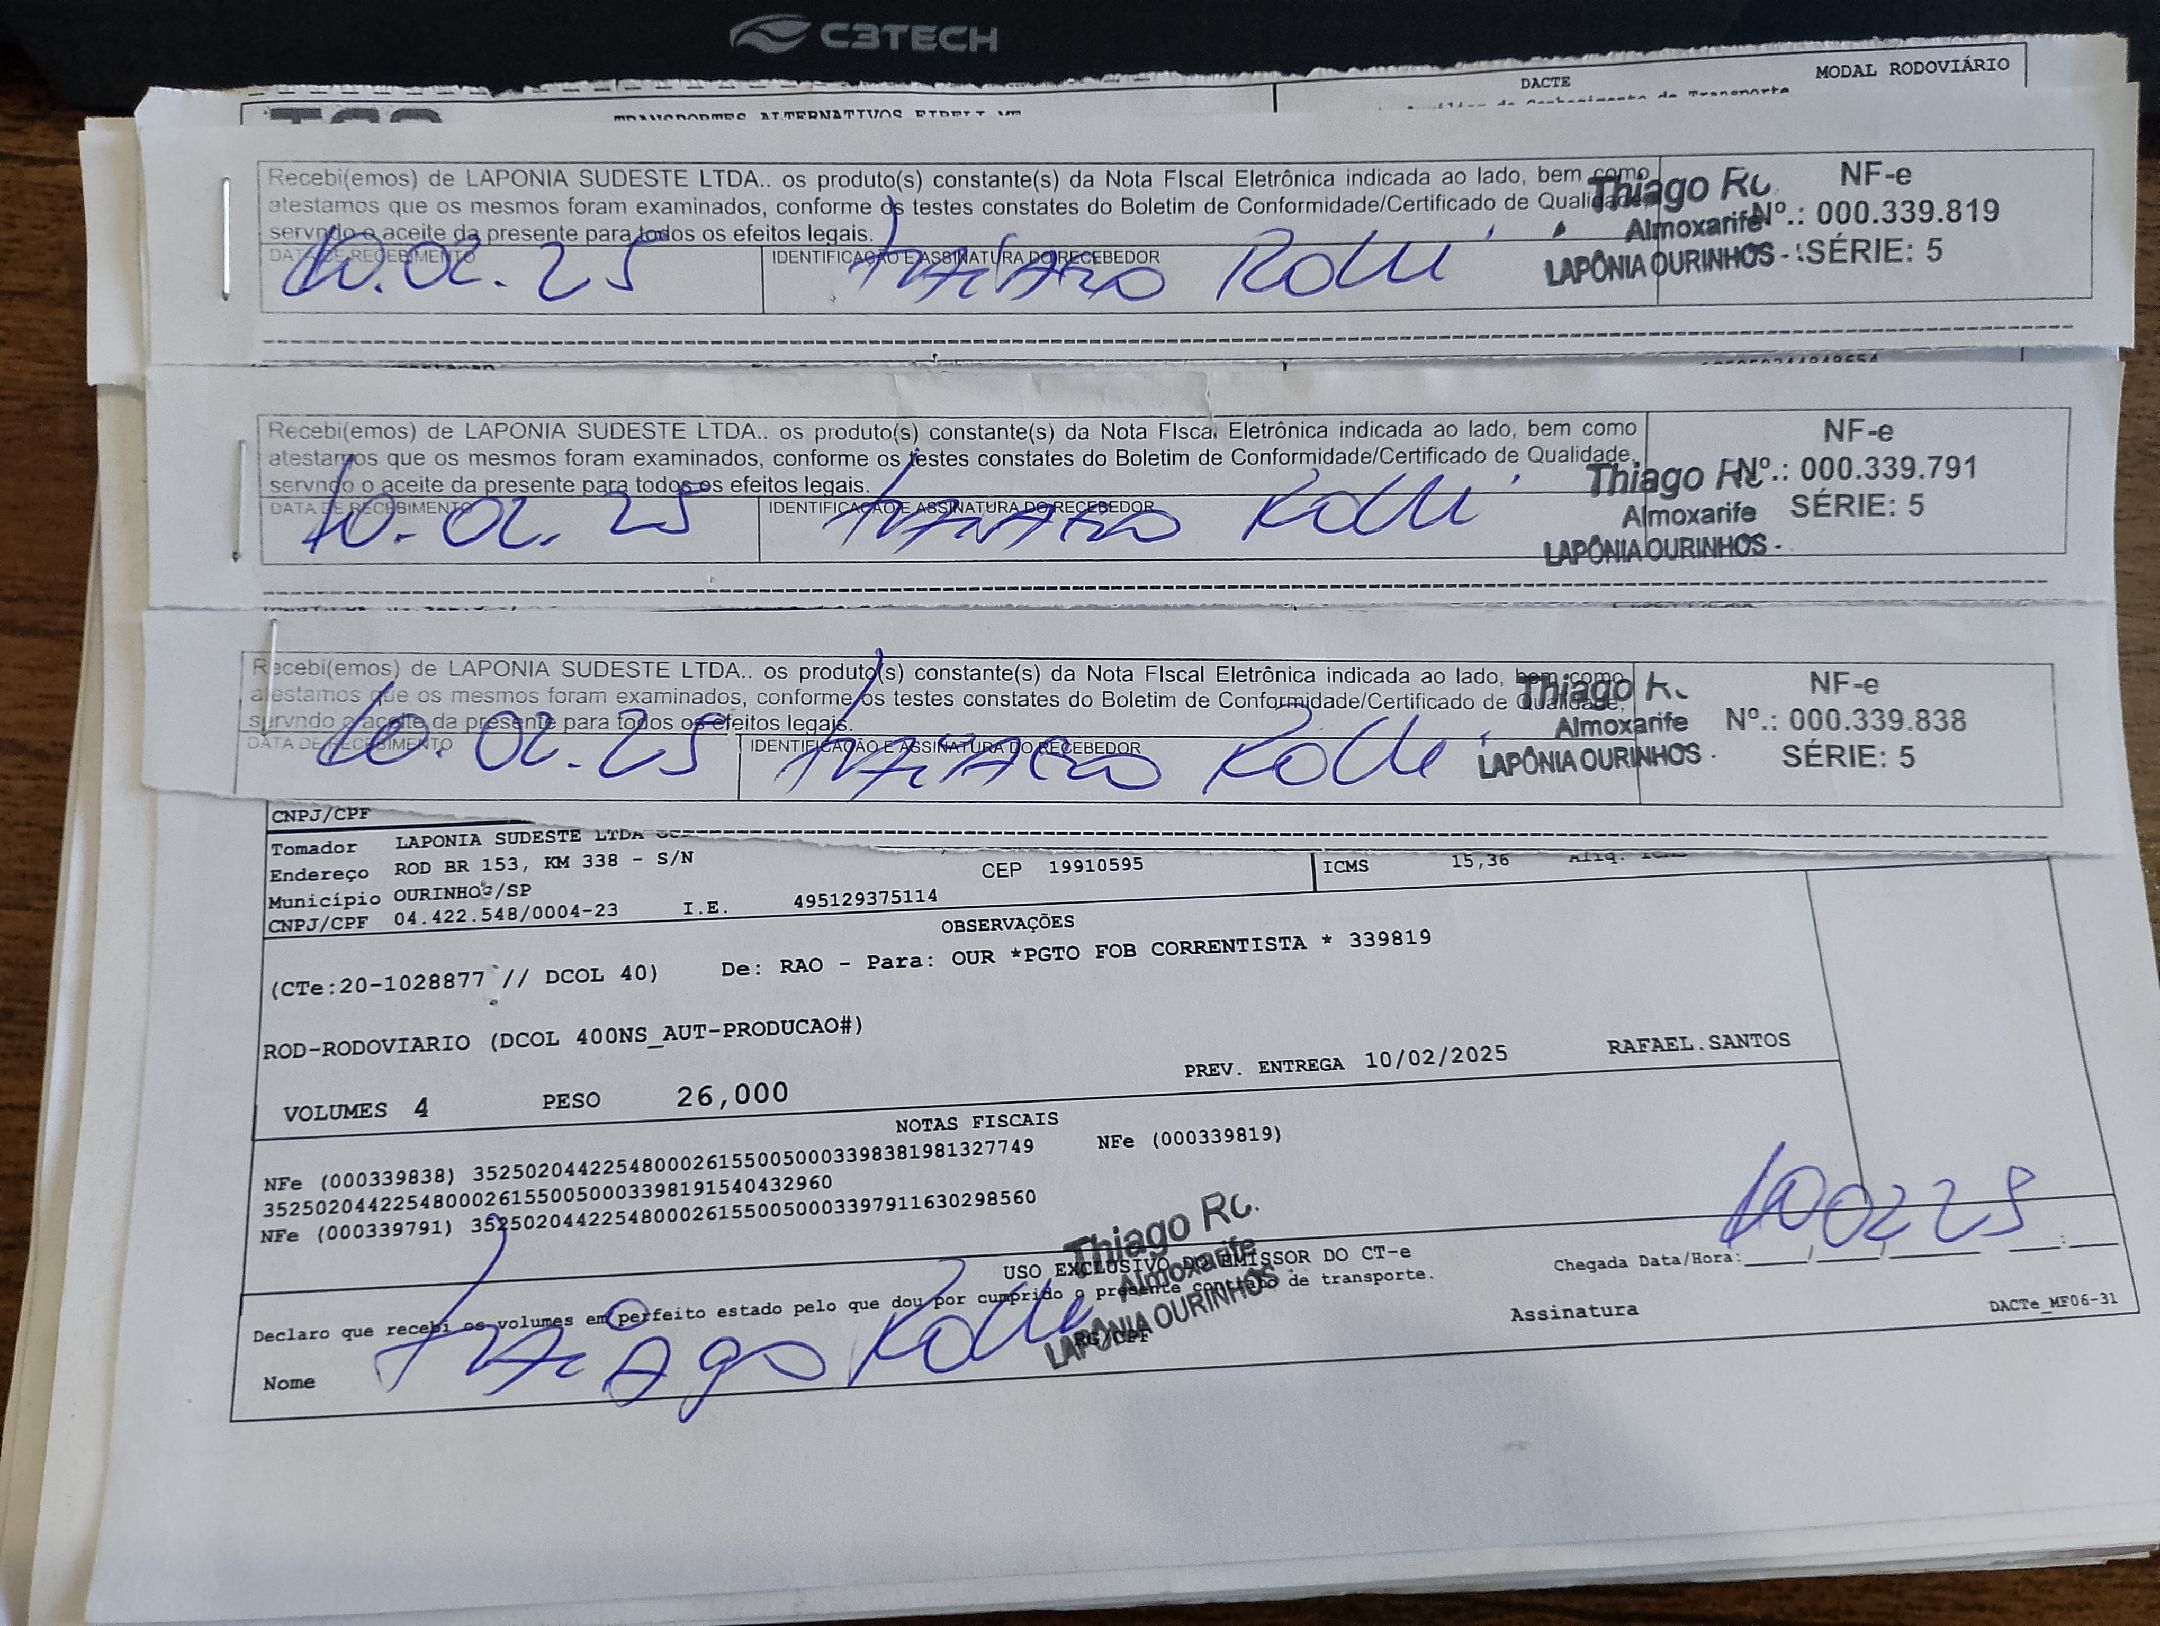 C3TECH
DACTE
MODAL RODOVIÁRIO
TRANSPORTES ALTERNATIVOS EIRELI ME
Recebi(emos) de LAPONIA SUDESTE LTDA.. os produto(s) constante(s) da Nota FIscal Eletrônica indicada ao lado, bem como
atestamos que os mesmos foram examinados, conforme os testes constates do Boletim de Conformidade/Certificado de Qualidade,
servndo o aceite da presente para todos os efeitos legais.
DATA DE RECEBIMENTO
IDENTIFICAÇÃO E ASSINATURA DO RECEBEDOR
10.02.25
Thiago
Thiago Ro.
Almoxarife
LAPÔNIA OURINHOS -
NF-e
Nº.: 000.339.819
SÉRIE: 5
Recebi(emos) de LAPONIA SUDESTE LTDA.. os produto(s) constante(s) da Nota FIscal Eletrônica indicada ao lado, bem como
atestamos que os mesmos foram examinados, conforme os testes constates do Boletim de Conformidade/Certificado de Qualidade,
servndo o aceite da presente para todos os efeitos legais.
DATA DE RECEBIMENTO
IDENTIFICAÇÃO E ASSINATURA DO RECEBEDOR
10.02.25
Thiago
Thiago
Almoxarife
LAPÔNIA OURINHOS -
NF-e
Nº.: 000.339.791
SÉRIE: 5
Recebi(emos) de LAPONIA SUDESTE LTDA.. os produto(s) constante(s) da Nota FIscal Eletrônica indicada ao lado, bem como
atestamos que os mesmos foram examinados, conforme os testes constates do Boletim de Conformidade/Certificado de Qualidade,
servndo o aceite da presente para todos os efeitos legais.
DATA DE RECEBIMENTO
IDENTIFICAÇÃO E ASSINATURA DO RECEBEDOR
10.02.25
Thiago
Thiago R.
Almoxarife
LAPÔNIA OURINHOS -
NF-e
Nº.: 000.339.838
SÉRIE: 5
CNPJ/CPF
Tomador LAPONIA SUDESTE LTDA
Endereço ROD BR 153, KM 338 - S/N CEP 19910595 ICMS 15,36
Município OURINHOS/SP
CNPJ/CPF 04.422.548/0004-23 I.E. 495129375114
OBSERVAÇÕES
(CTe:20-1028877 // DCOL 40) De: RAO - Para: OUR *PGTO FOB CORRENTISTA * 339819
ROD-RODOVIARIO (DCOL 400NS_AUT-PRODUCAO#)
PREV. ENTREGA 10/02/2025 RAFAEL.SANTOS
VOLUMES 4 PESO 26,000
NOTAS FISCAIS
NFe (000339838) 35250204422548000261550050003398381981327749 NFe (000339819)
35250204422548000261550050003398191540432960
NFe (000339791) 35250204422548000261550050003397911630298560
Thiago Ro.
Almoxarife
LAPÔNIA OURINHOS
USO EXCLUSIVO DO EMISSOR DO CT-e
Declaro que recebi os volumes em perfeito estado pelo que dou por cumprido o presente contrato de transporte.
10 02 25
Chegada Data/Hora:____/____/____ ___:___
Nome Thiago
RG/CPF
Assinatura
DACTe_MF06-31